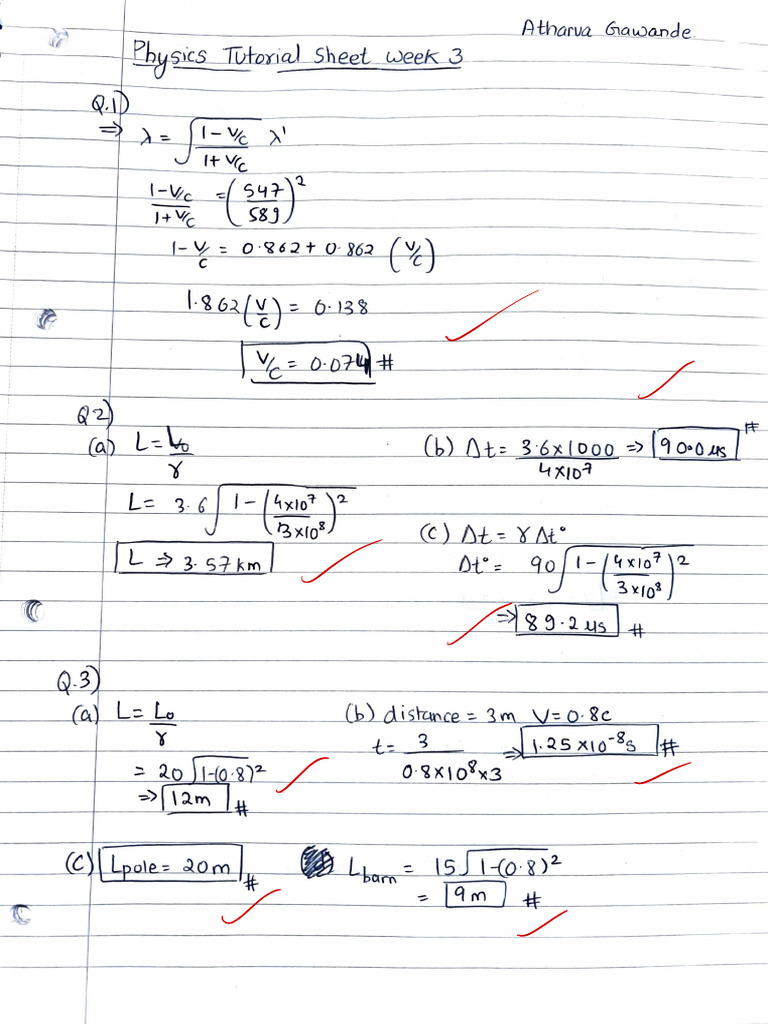 Atharva Gawande
Physics Tutorial Sheet week 3
Q.1)
⇒ λ = √((1-V/c)/(1+V/c)) λ'
(1-V/c)/(1+V/c) = (547/589)²
1-V/c = 0.862 + 0.862 (V/c)
1.862(V/c) = 0.138
V/c = 0.074 #
Q2)
(a) L = L₀/γ
L = 3.6 √(1-(4×10⁷/3×10⁸)²)
L ⇒ 3.57 km
(b) Δt = (3.6×1000)/(4×10⁷) ⇒ 90.0 μs #
(c) Δt = γ Δt°
Δt° = 90 √(1-(4×10⁷/3×10⁸)²)
⇒ 89.2 μs #
Q.3)
(a) L = L₀/γ
= 20 √(1-(0.8)²)
⇒ 12m #
(b) distance = 3m V = 0.8c
t = 3/(0.8×10⁸×3) ⇒ 1.25×10⁻⁸s #
(C) Lpole = 20m #
Lbarn = 15 √(1-(0.8)²)
= 9m #